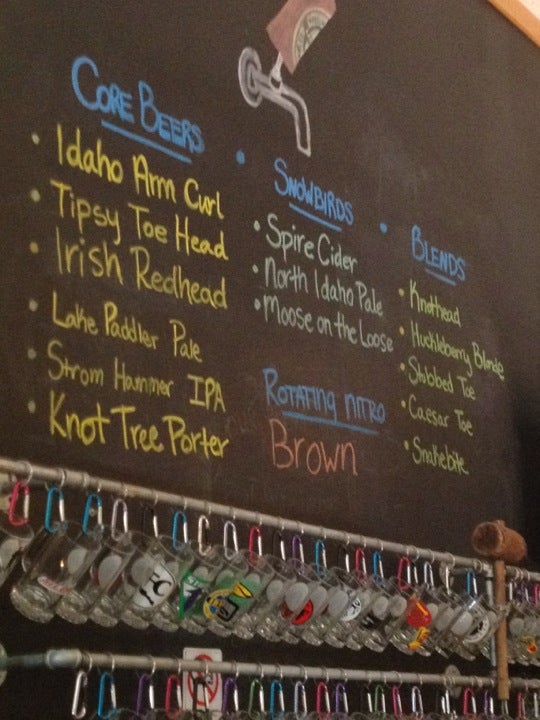 CORE BEERS
• Idaho Arm Curl
• Tipsy Toe Head
• Irish Redhead
• Lake Paddler Pale
• Strom Hammer IPA
• Knot Tree Porter
• SNOWBIRDS
• Spire Cider
• North Idaho Pale
• Moose on the Loose
ROTATING NITRO
Brown
• BLENDS
• Knothead
• Huckleberry Blonde
• Stubbed Toe
• Caesar Toe
• Snakebite